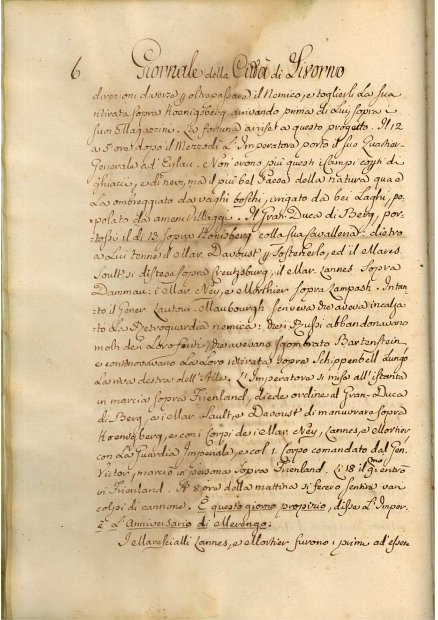 6 Giornale della Città di Livorno
divozioni diverse pp oltrepassare il Nemico, e toglierli la sua
ritirata sopra Koenigsberg, arrivando prima di Lui sopra i
suoi Magazzini. La fortuna arrise a questo progetto. Il 12
a 5 ore dopo il Mezzodì L'Imperatore portò il suo Quartier
Generale ad' Eylau. Non erano più questi i Campi coperti di
ghiacci, e di nevi, ma il più bel Paese della natura qua e
La ombreggiato da vaghi boschi, irrigato da bei Laghi, po-
polato da ameni Villaggi. Il Gran-Duca di Berg, por-
tossi il di 13 sopra Konisberg colla sua Cavalleria: dietro
a Lui venne il Mar. Davoust pp Sostenerlo, ed il Mares.
Soult si distese sopra Creutzburg, il Mar. Lannes sopra
Damnau: i Mar. Ney, e Morthier sopra Lampash. Intan-
to il Gener. Latour-Maubourgh scriveva che aveva incalza-
to La Retroguardia nemica: che i Russi abbandonavano
molti dei Loro feriti; che avevano sgombrato Bartenstein,
e continovavano La Loro ritirata sopra Schippenbell lungo
La riva destra dell'Alle. L'Imperatore si mise all'istante
in marcia sopra Frienland, diede ordine al Gran-Duca
di Berg, a i Mar. Sault, e Davoust di manuvrare sopra
Koenisgberg, e con i Corpi de i Mar. Ney, Lannes, e Mortier,
con La Guardia Imperiale, e col 1. Corpo comandato dal Gen.
Victor, marciò in persona sopra Frienland. Li 18 il 9.
vi Frienland. A 3 ore della mattina si fecero sentire vari
colpi di cannone. È questo giorno propizio, disse L'Imper.
è L'Anniversario di Merengo.
I Marescialli Lannes, e Mortier furono i primi ad' essere